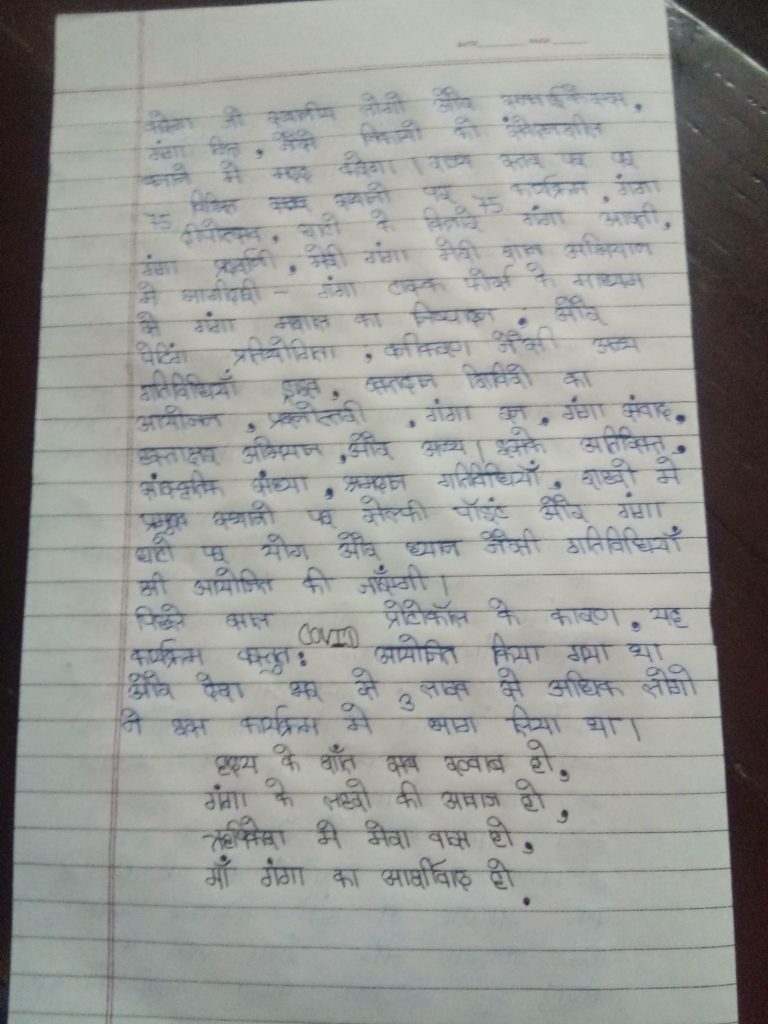 DATE PAGE
करेगा जो स्थानीय लोगो और
गंगा मित्र, जैसे निकायो को संवेदनशील
बनाने मे मदद करेगा। राज्य स्तर पर पर
75 विभिन्न स्थानो पर 75 कार्यक्रम, गंगा
दीपोत्सव, घाटो के किनारे गंगा आरती,
गंगा प्रदर्शनी, मेरी गंगा मेरी शान अभियान
मे भागीदारी - गंगा टास्क फोर्स के माध्यम
से गंगा मशाल का निष्पादन; और
पेटिंग प्रतियोगिता; जैसी अन्य
गतिविधियाँ शुरू, रक्तदान शिविरो का
आयोजन, प्रश्नोत्तरी, गंगा रन, गंगा संवाद,
हस्ताक्षर अभियान, और अन्य। इसके अतिरिक्त,
सांस्कृतिक संध्या, श्रमदान गतिविधियाँ, राज्यो मे
प्रमुख स्थानो पर सेल्फी पॉइंट और गंगा
घाटो पर योग और ध्यान जैसी गतिविधियाँ
भी आयोजित की जाएँगी।
पिछले साल COVID प्रोटोकॉल के कारण, यह
कार्यक्रम वस्तुत: आयोजित किया गया था
और देश भर से 3 लाख से अधिक लोगो
ने इस कार्यक्रम मे भाग लिया था।
हृदय के शाँत सब ख्वाब हो,
गंगा के लहरो की आवाज हो,
ऋषिकेश मे मेरा वास हो,
माँ गंगा का आर्शीवाद हो.